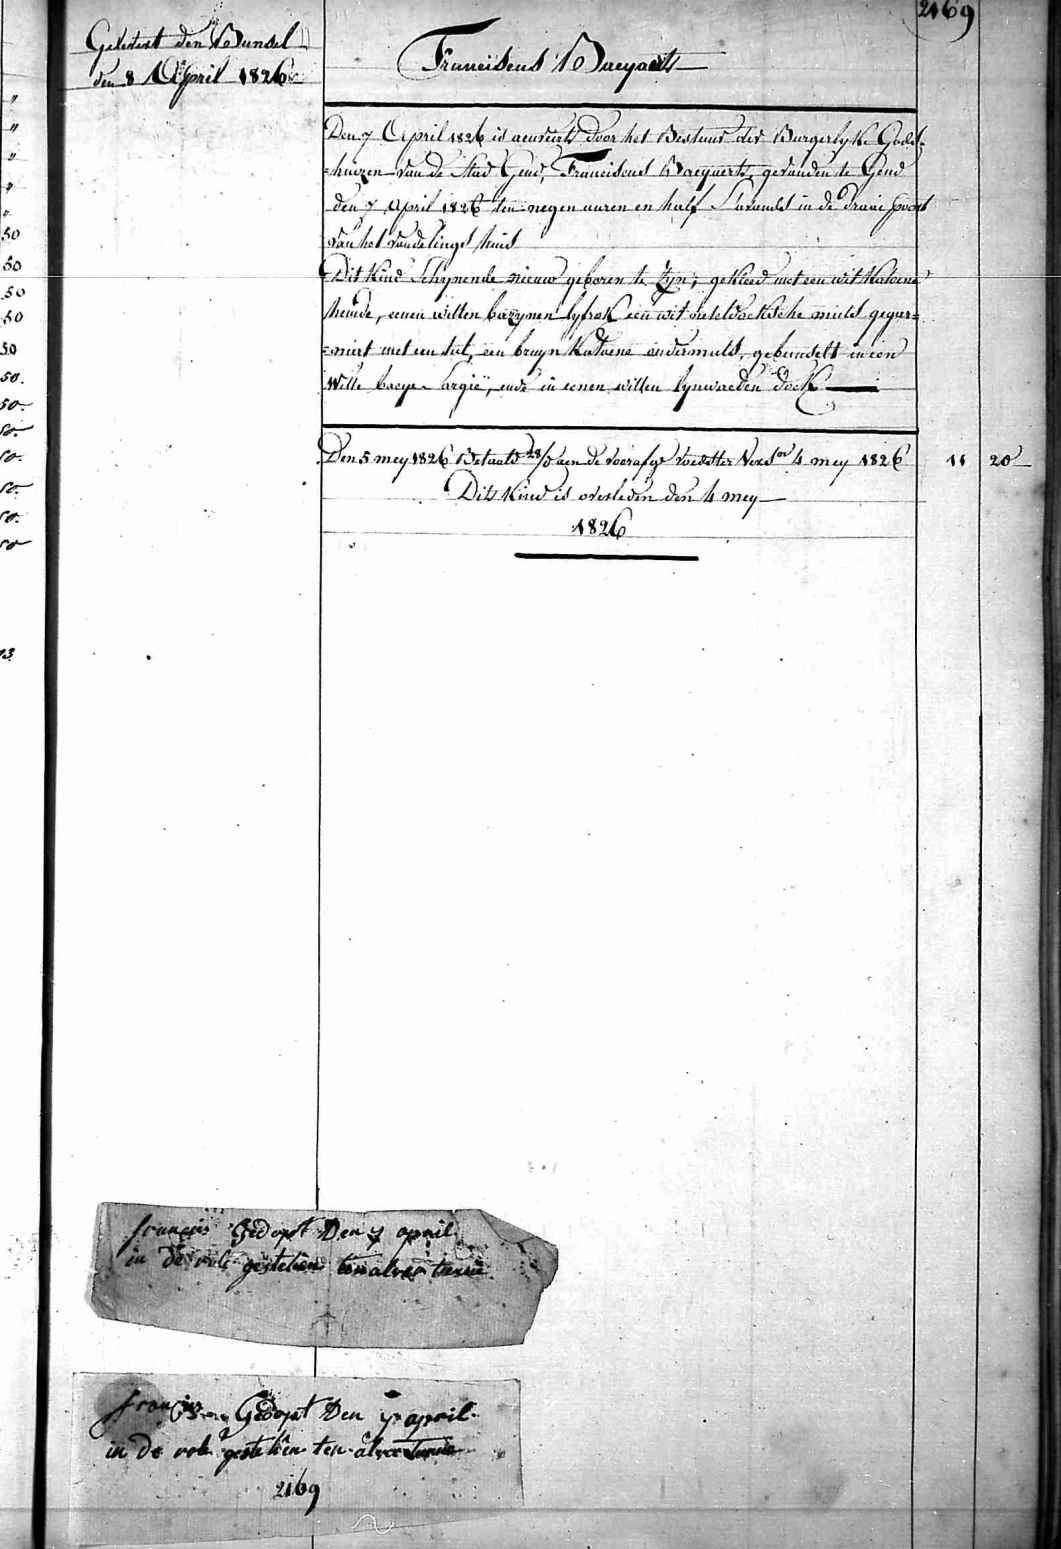 2169
Gekertert den Bunsel
den 8 April 1826
Franciscus Baeyaerts
Den 7 April 1826 is aenveird door het Bestuur der Burgerlyke Gods-
=huizen van de Stad Gend, Franciscus Baeyaerts, gevonden te Gend
den 7 April 1826 ten negen uuren en half s'avonds in de draai poort
van het vondelings huis
Dit kind schynende nieuw geboren te zyn, gekleed met een wit katoene
hemde, eenen witten bazynen lyfrok een wit neteldoeksche muts gegar=
=niert met een tul, een bruyn katoene ondermuts, gebunselt in een
witte baeye sargië, ende in eenen witten lynwaeden doek
Den 5 mey 1826 Betaald 28/ aen de voorafge voedster Vers 4 mey 1826 11 20
Dit kind is overleden den 4 mey
1826
"
"
"
"
"
50
50
50
50
50
50.
50.
50.
50.
50.
50.
50
13
francis Gedopt Den 7 april
in de rolle gesteken ten
francis Gedopt Den 7 april
in de role gesteken ten
2169